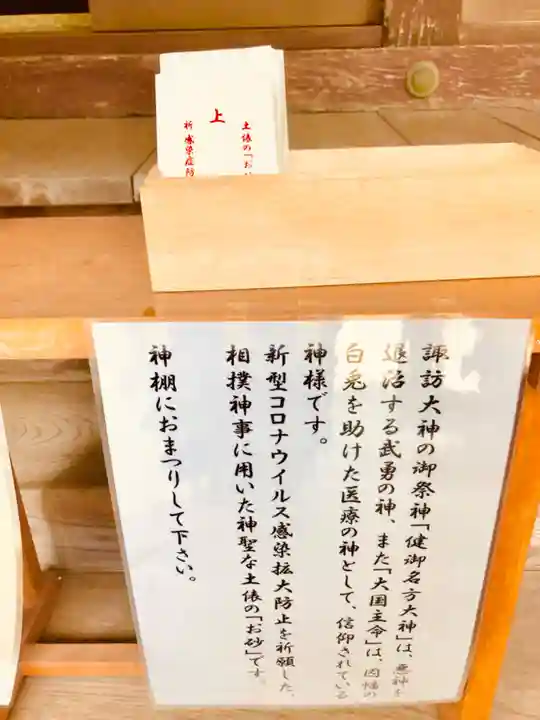 上
土俵の「お
祈 感染症防
諏訪大神の御祭神「健御名方大神」は、悪神を
退治する武勇の神、また「大国主命」は、因幡の
白兎を助けた医療の神として、信仰されている
神様です。
新型コロナウイルス感染拡大防止を祈願した、
相撲神事に用いた神聖な土俵の「お砂」です。
神棚におまつりして下さい。